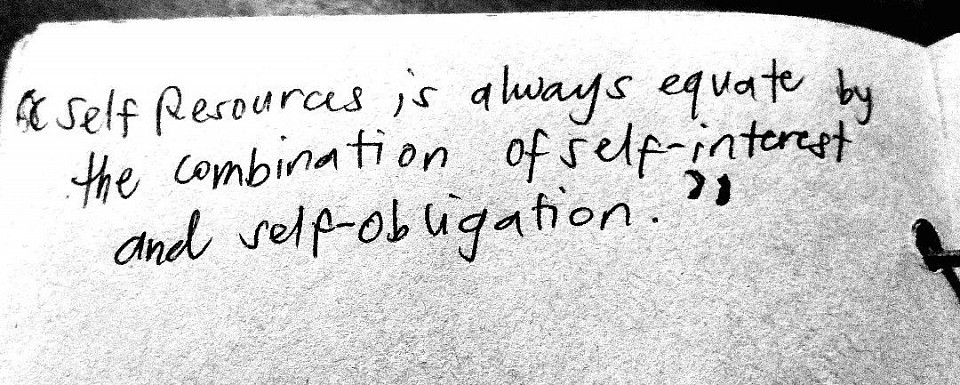 “Self Resources is always equate by
the combination of self-interest
and self-obligation.”